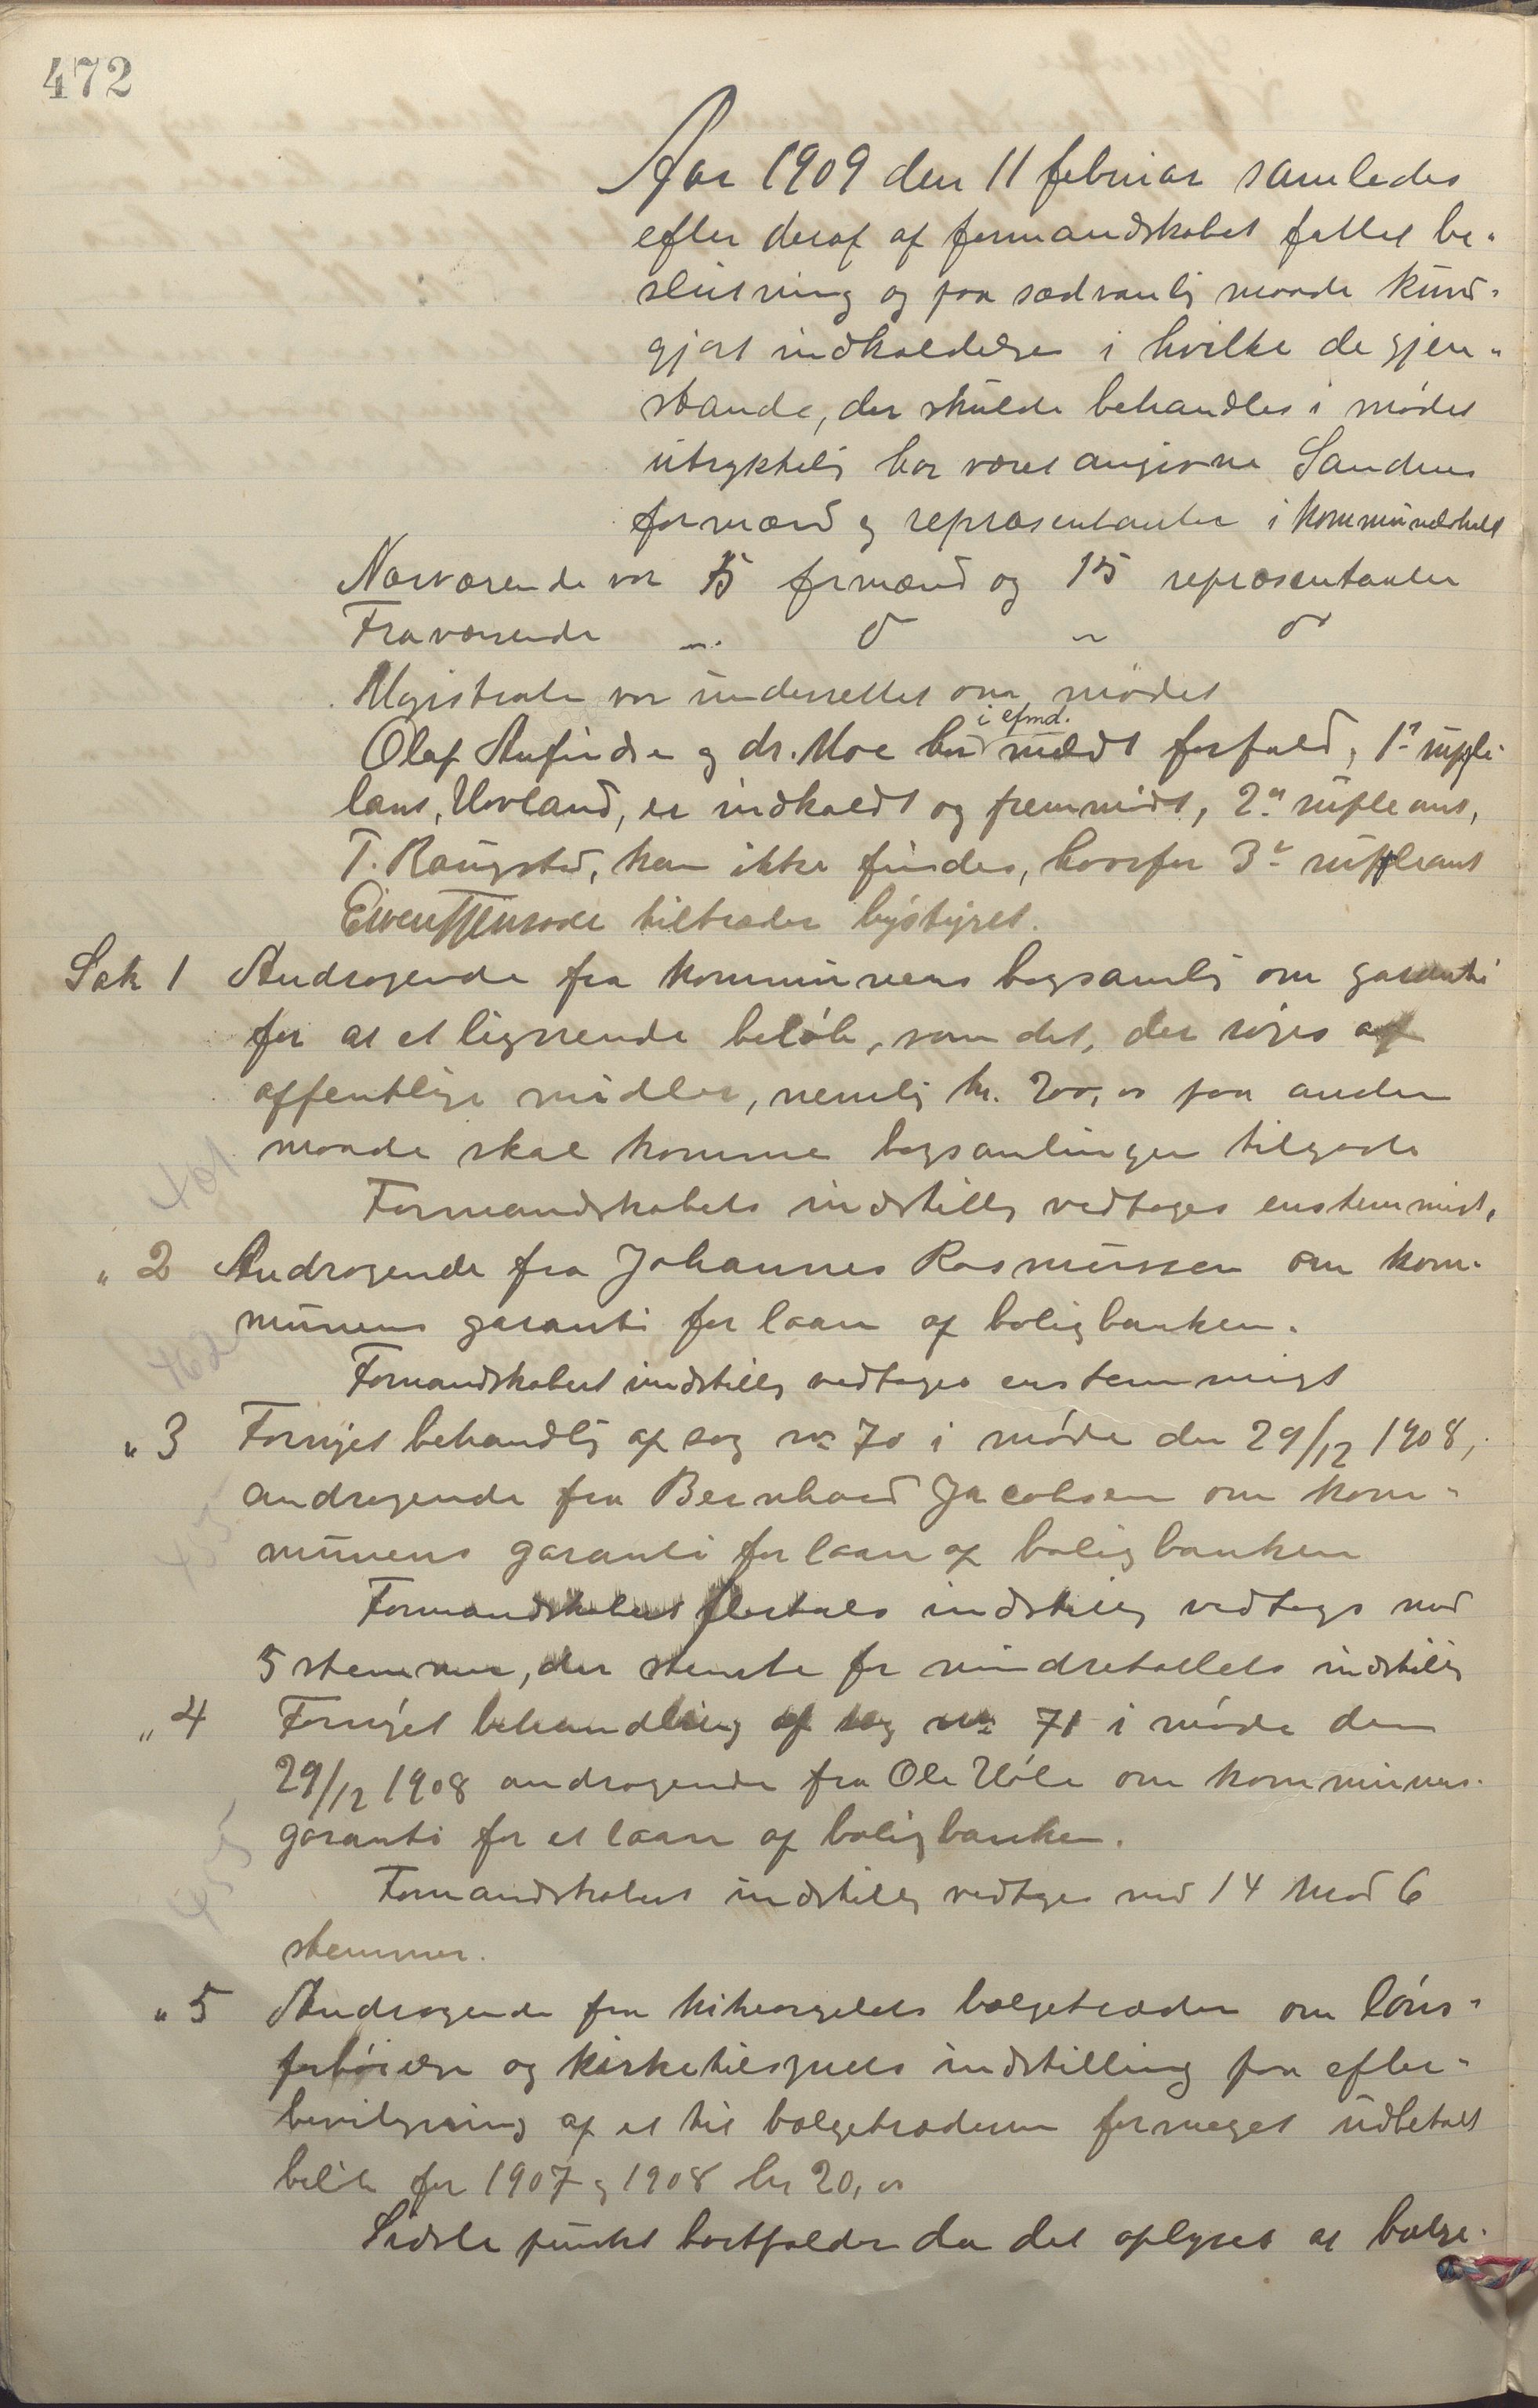 472
Aar 1909 den 11 februar samledes
efter deraf af formandskabet fattet be-
slutning og paa sædvanlig maade kund-
gjort indkaldelse i hvilke de gjen-
stande, der skulde behandles i mødet
utrykkelig har været angivne Sandnes
formænd og repræsentanter i kommunelokalet
Nærværende var 5 formænd og 15 repræsentanter
Fraværende " 0 " 0
Magistraten var underrettet om mødet
i efmd.
Olaf Aufindsen og dr. Moe har meldt forfald, 1ste supple-
ant, Hovland, er indkaldt og fremmødt, 2den supleant,
T. Raugstad, kan ikke findes, hvorfor 3die suppleant
tiltræder bystyret.
Sak 1 Andragende fra kommunens bogsamlg om garanti
for at et lignende beløb, som det, der søges af
offentlige midler, nemlig kr. 200,00 paa anden
maade skal komme bogsamlingen tilgode
461
Formandskabets indstillg vedtages enstemmigt.
" 2 Andragende fra Johannes Rasmussen om kom-
munens garanti for laan af boligbanken.
462
Formandskabets indstillg vedtages enstemmigt
" 3 Fornyet behandlg af sag no 70 i møde den 29/12 1908,
andragende fra Bernhard Jacobsen om kom-
munens garanti for laan af boligbanken
455
Formandskabets flertals indstillg vedtages mod
5 stemmer, der stemte for mindretallets indstillg
" 4 Fornyet behandling af sag no 71 i møde den
29/12 1908 andragende fra Ole Høle om kommunens
garanti for et laan af boligbanken.
455
Formandskabets indstillg vedtages med 14 mod 6
stemmer.
" 5 Andragende fra kirkeorgelets bælgetræder om løns-
forhøielse og kirketilsynets indstilling paa efter-
bevilgning af et til bælgetræderen formeget udbetalt
beløb for 1907 og 1908 kr 20,00
Sidste punkt bortfalder da det oplyses at bælge-